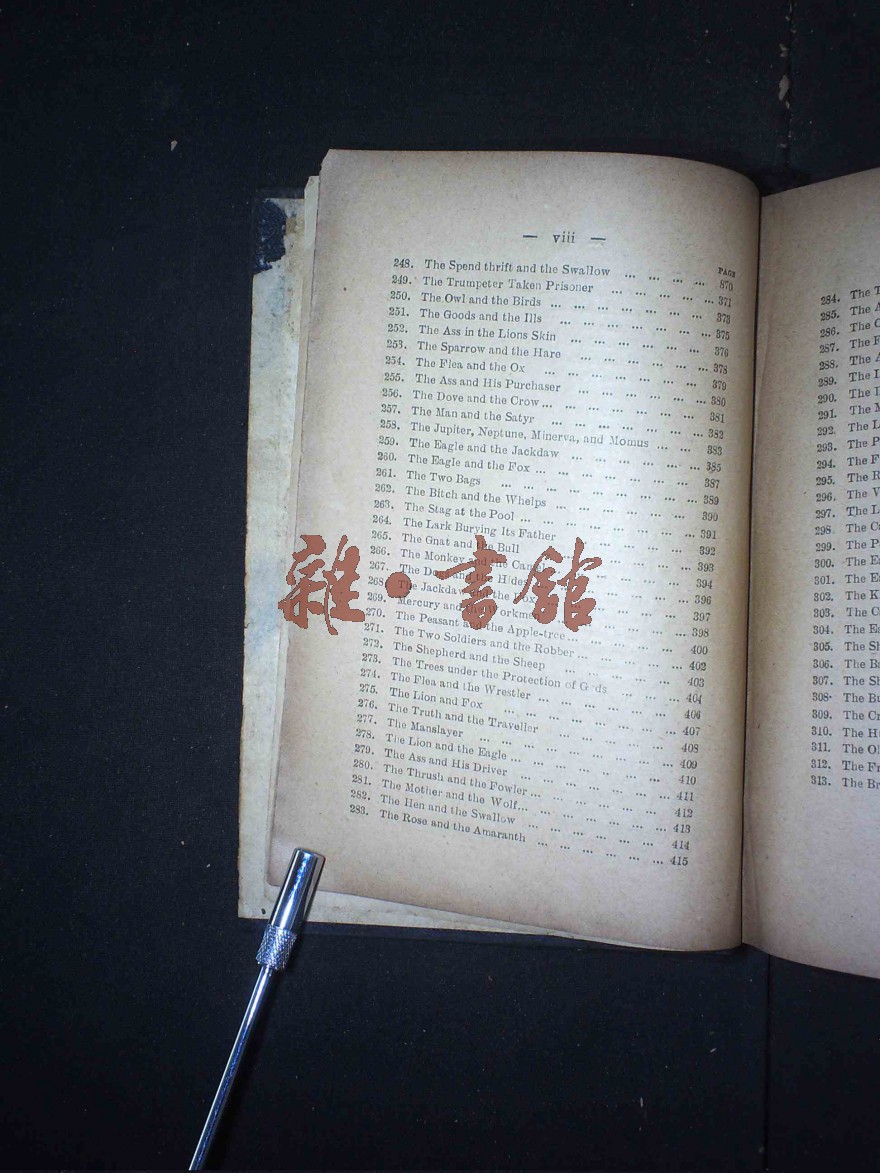 — viii —
PAGE
248. The Spend thrift and the Swallow ... ... ... ... 870
249. The Trumpeter Taken Prisoner ... ... ... ... 371
250. The Owl and the Birds ... ... ... ... ... ... 373
251. The Goods and the Ills ... ... ... ... ... ... 375
252. The Ass in the Lions Skin ... ... ... ... ... 376
253. The Sparrow and the Hare ... ... ... ... ... 378
254. The Flea and the Ox ... ... ... ... ... ... 379
255. The Ass and His Purchaser ... ... ... ... ... 380
256. The Dove and the Crow ... ... ... ... ... ... 381
257. The Man and the Satyr ... ... ... ... ... ... 382
258. The Jupiter, Neptune, Minerva, and Momus ... ... 383
259. The Eagle and the Jackdaw ... ... ... ... ... 385
260. The Eagle and the Fox ... ... ... ... ... ... 387
261. The Two Bags ... ... ... ... ... ... ... 389
262. The Bitch and the Whelps ... ... ... ... ... 390
263. The Stag at the Pool ... ... ... ... ... ... 391
264. The Lark Burying Its Father ... ... ... ... 392
265. The Gnat and the Bull ... ... ... ... ... 393
266. The Monkey and the Camel ... ... ... ... 394
267. The Dogs and the Hides ... ... ... ... 396
268. The Jackdaw and the Fox ... ... ... ... 397
269. Mercury and the Workmen ... ... ... ... 398
270. The Peasant and the Apple-tree ... ... ... ... 400
271. The Two Soldiers and the Robber ... ... ... ... 402
272. The Shepherd and the Sheep ... ... ... ... 403
273. The Trees under the Protection of Gods ... ... ... 404
274. The Flea and the Wrestler ... ... ... ... ... 406
275. The Lion and Fox ... ... ... ... ... ... 407
276. The Truth and the Traveller ... ... ... ... ... 408
277. The Manslayer ... ... ... ... ... ... ... 409
278. The Lion and the Eagle ... ... ... ... ... ... 410
279. The Ass and His Driver ... ... ... ... ... ... 411
280. The Thrush and the Fowler ... ... ... ... ... 412
281. The Mother and the Wolf ... ... ... ... ... ... 413
282. The Hen and the Swallow ... ... ... ... ... ... 414
283. The Rose and the Amaranth ... ... ... ... ... 415
284. The
285. The
286. The
287. The
288. The
289. The
290. The
291. The
292. The
293. The
294. The
295. The
296. The
297. The
298. The
299. The
300. The
301. The
302. The
303. The
304. The
305. The
306. The
307. The
308. The
309. The
310. The
311. The
312. The
313. The
雜·書館